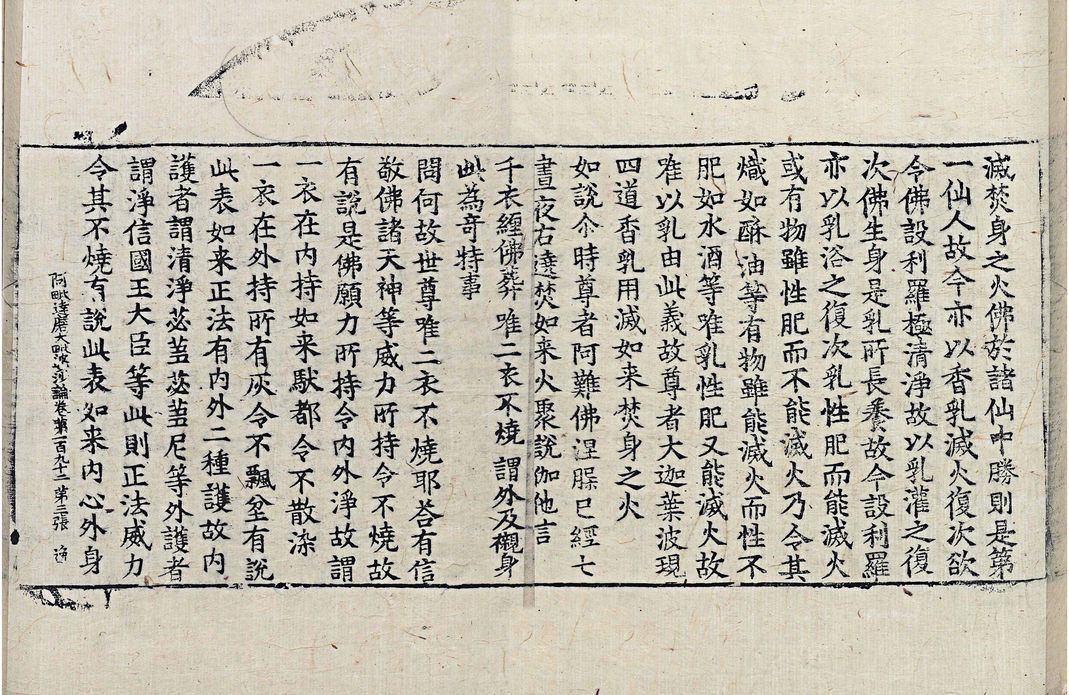 滅焚身之火佛於諸仙中勝則是第
一仙人故今亦以香乳滅火復次欲
令佛設利羅極清淨故以乳灌之復
次佛生身是乳所長養故今設利羅
亦以乳浴之復次乳性肥而能滅火
或有物雖性肥而不能滅火乃令其
熾如酥油等有物雖能滅火而性不
肥如水酒等唯乳性肥又能滅火故
唯以乳由此義故尊者大迦葉波現
四道香乳用滅如来焚身之火
如說尒時尊者阿難佛涅槃巳經七
晝夜右遶焚如来火聚說伽他言
千衣纏佛葬唯二衣不燒謂外及襯身
此為奇特事
問何故世尊唯二衣不燒耶荅有信
敬佛諸天神等威力所持令不燒故
有說是佛願力所持令內外淨故謂
一衣在內持如来馱都令不散染
一衣在外持所有灰令不飄坌有說
此表如来正法有內外二種護故內
護者謂清淨苾芻苾芻尼等外護者
謂淨信國王大臣等此則正法威力
令其不燒有說此表如来內心外身
阿毗達磨大毗婆沙論卷第一百九十二 第三張